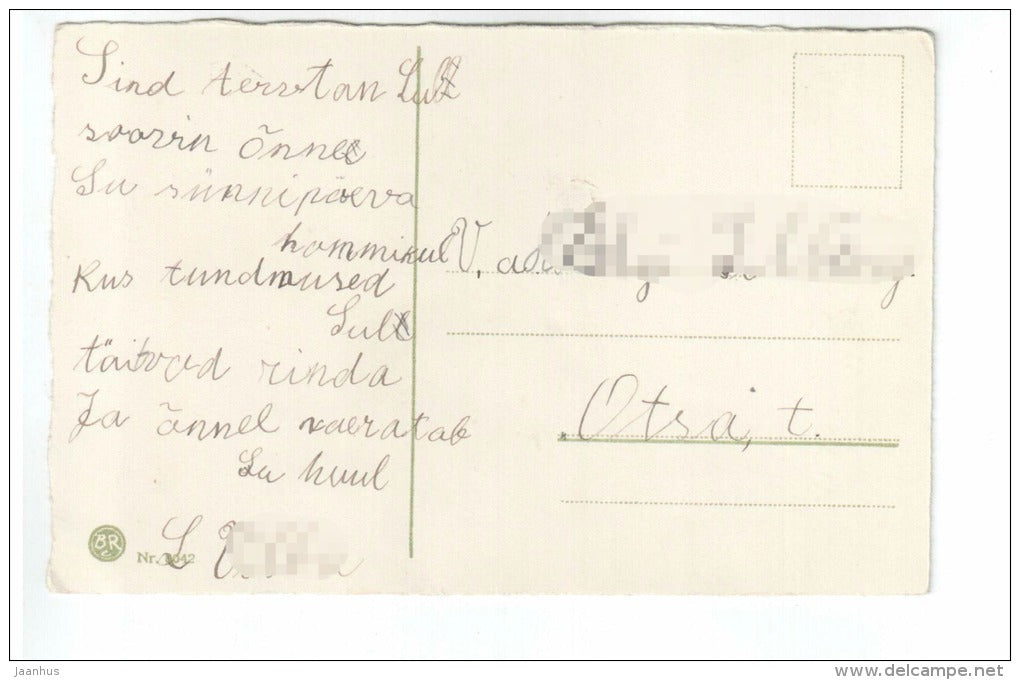 Sind terwtan Sull
soovin õnne
Su sünnipäeva
hommikul
Kus tundmused
Sul
täitvad rinda
Ja õnnel naeratab
Su huul
L
V.
Otsa, t.
BR
Nr.
jaanhus
www.delcampe.net